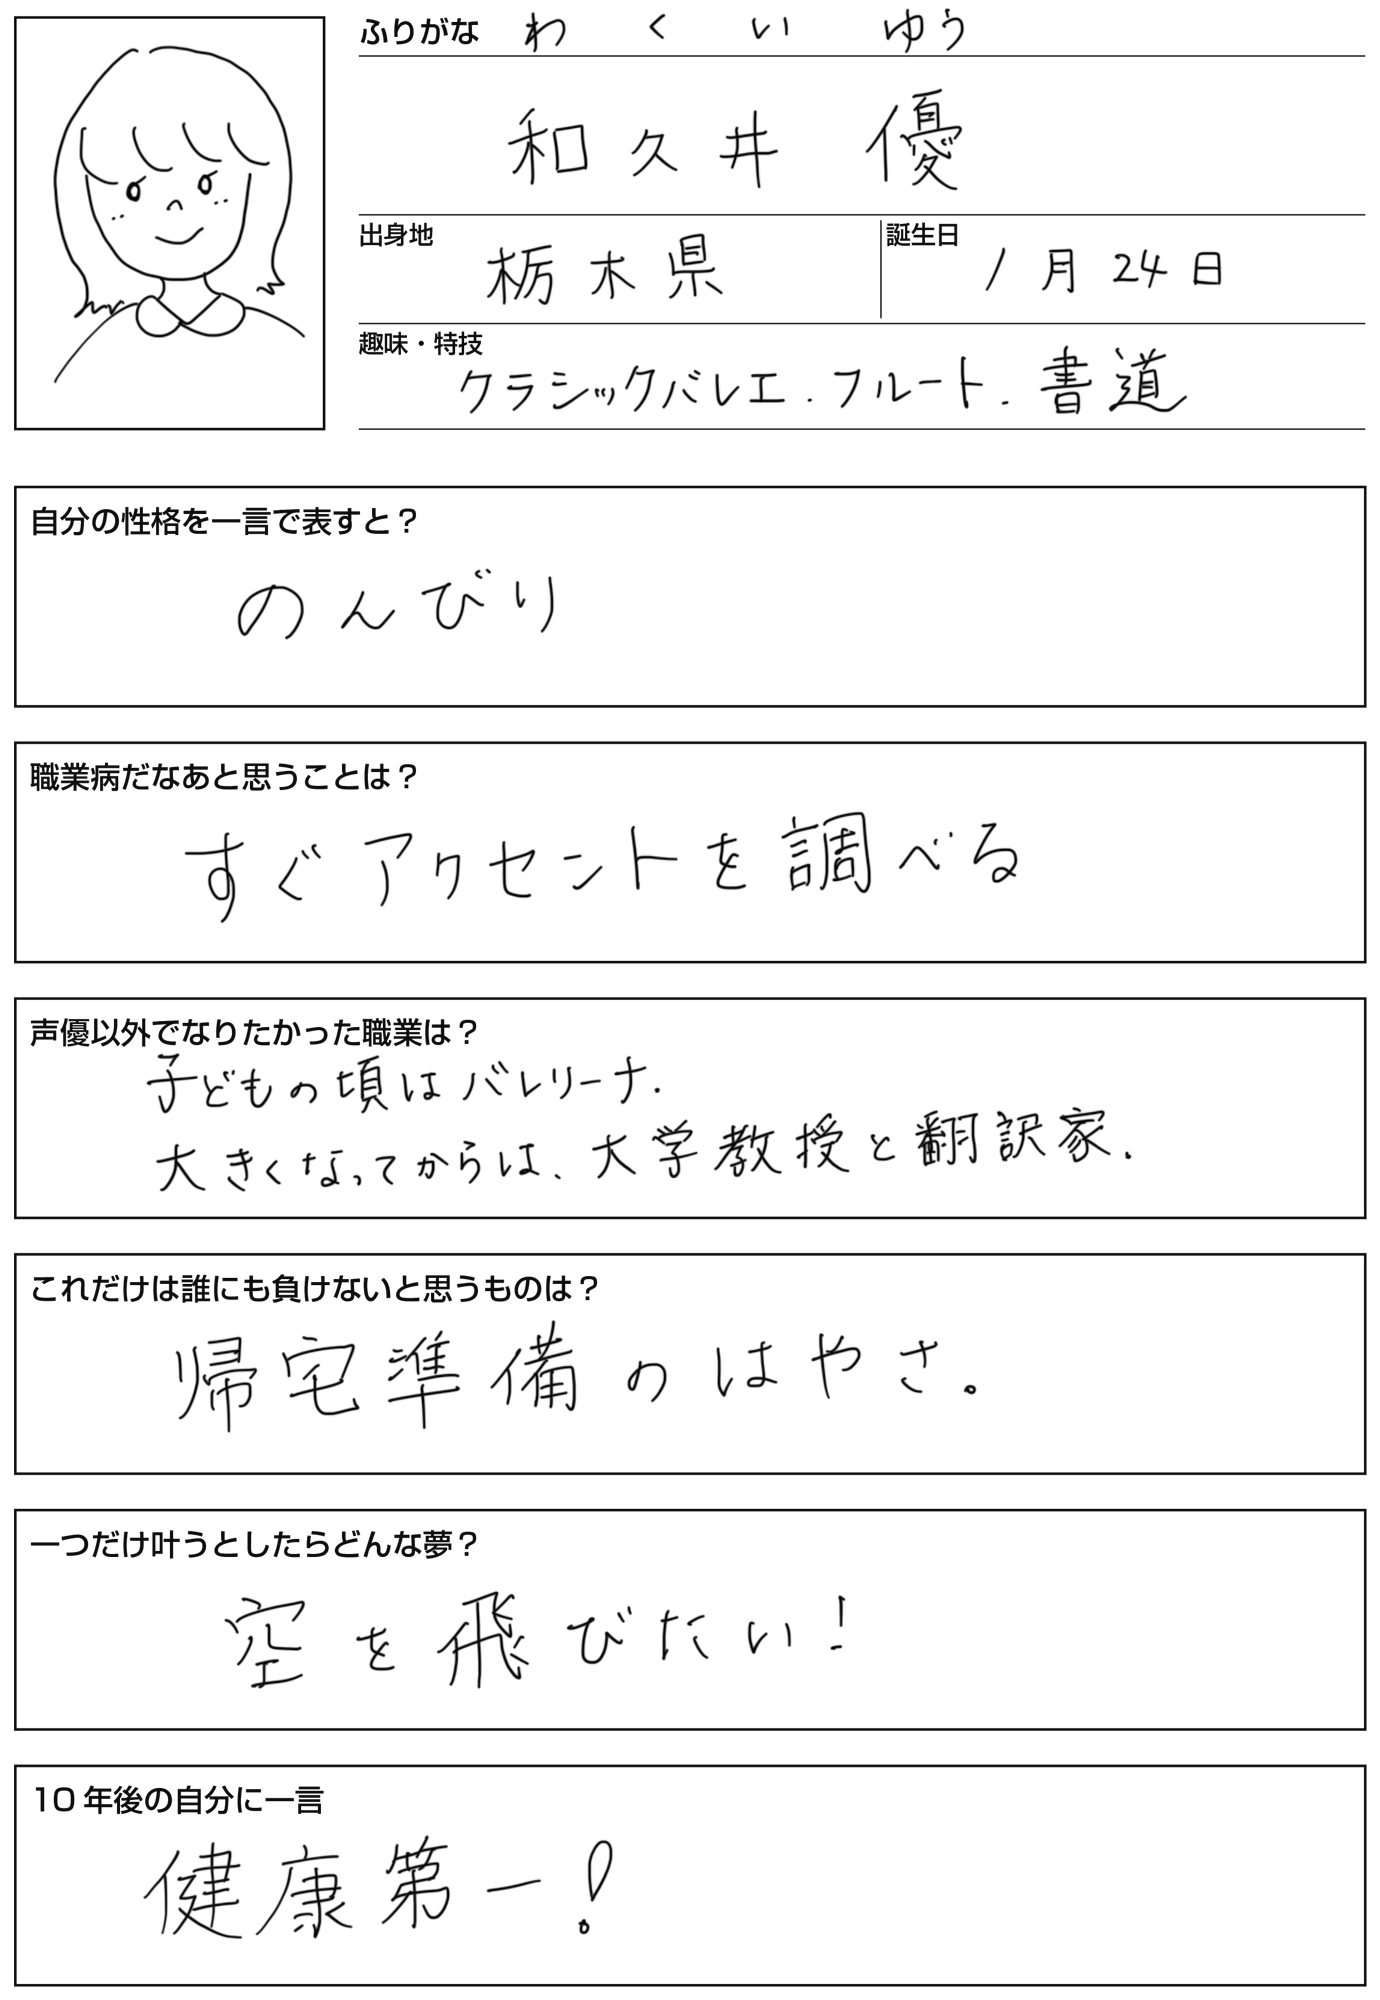 ふりがな わくい ゆう
和久井 優
出身地 栃木県 誕生日 1月24日
趣味・特技
クラシックバレエ.フルート.書道
自分の性格を一言で表すと？
のんびり
職業病だなあと思うことは？
すぐアクセントを調べる
声優以外でなりたかった職業は？
子どもの頃はバレリーナ.
大きくなってからは、大学教授と翻訳家.
これだけは誰にも負けないと思うものは？
帰宅準備のはやさ。
一つだけ叶うとしたらどんな夢？
空を飛びたい!
10年後の自分に一言
健康第一!